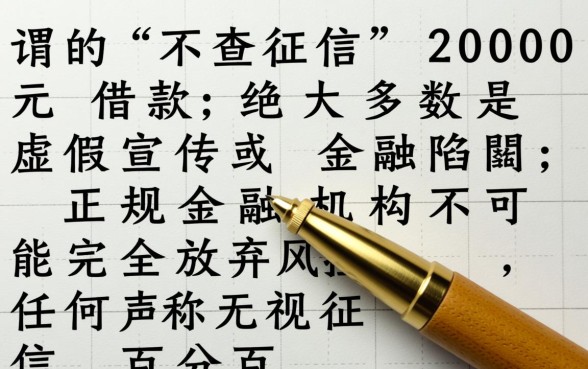 谓的“不查征信”20000
元 借款；绝大多数是
虚假宣传或 金融陷阱；
正规金融机构不可
能完全放弃风 ，
任何声称无视征
信 百分百